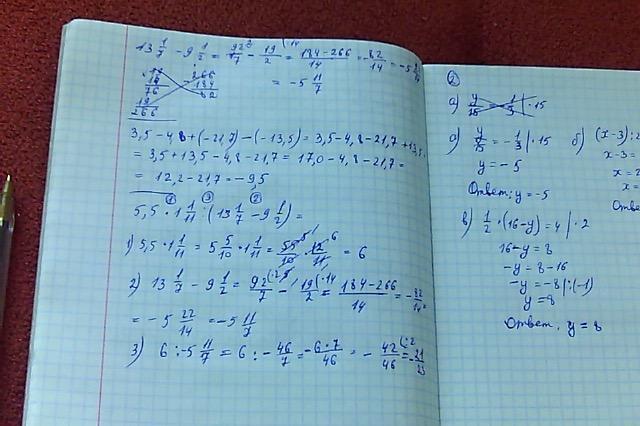 13 1/7 - 9 1/2 = 92/7 - 19/2 = 184-266/14 = -82/14 = -5
= -5 11/7
266
184
82
76
19
266
3,5-4,8+(-21,7)-(-13,5)=3,5-4,8-21,7+13,5=
=3,5+13,5-4,8-21,7=17,0-4,8-21,7=
=12,2-21,7=-9,5
① ③ ②
5,5·1 1/11 : (13 1/7 - 9 1/2)=
1) 5,5·1 1/11 = 5 5/10 · 1 1/11 = 55/10 · 12/11 = 6
2) 13 1/7 - 9 1/2 = 92/7 - 19/2 = 184-266/14 = -82/14 =
= -5 22/14 = -5 11/7
3) 6 : -5 11/7 = 6 : -46/7 = -6·7/46 = -42/46 = -21/23
②
а) y/15 = -1/3 |·15
y = -5
Ответ: y = -5
б) (x-3):2
x-3=
x=2
x=
Отве
в) 1/2·(16-y)=4 |·2
16-y=8
-y=8-16
-y=-8 |:(-1)
y=8
Ответ, y=8